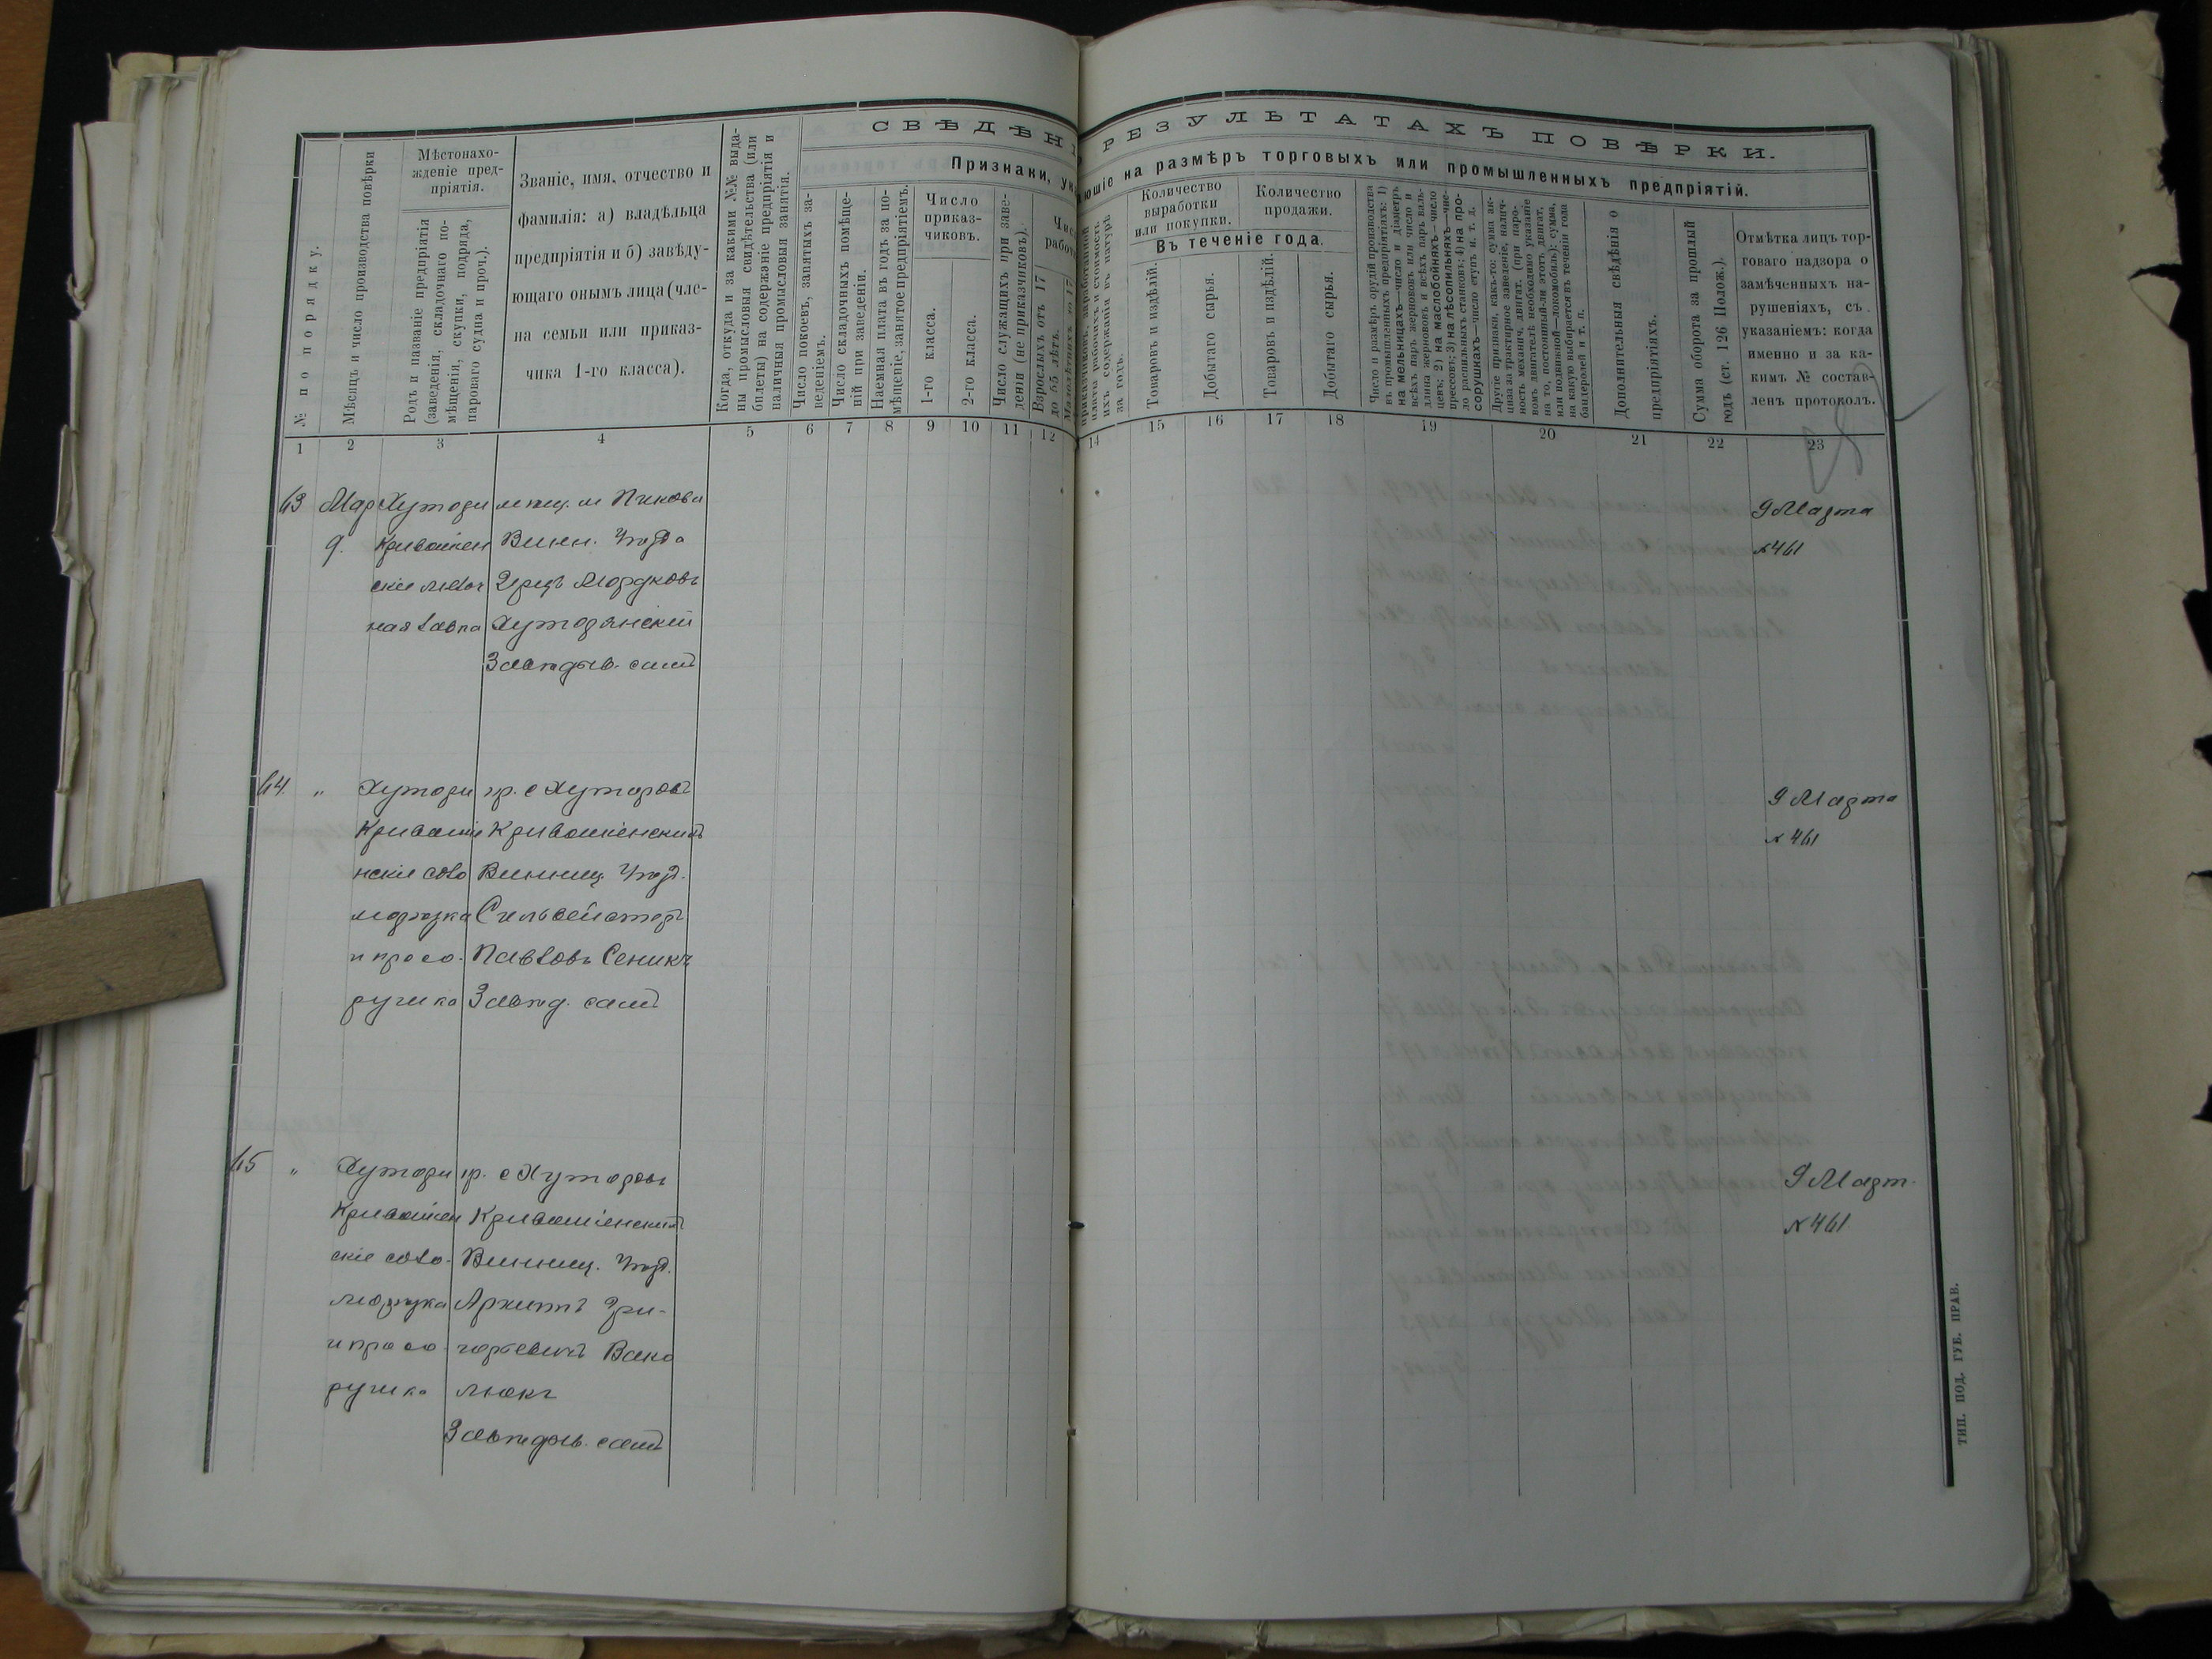 СВѢДѢНІ
РЕЗУЛЬТАТАХЪ ПОВѢРКИ.
Признаки, ук
ющіе на размѣръ торговыхъ или промышленныхъ предпріятій.
№ по порядку.
Мѣсяцъ и число производства повѣрки
Мѣстонахо-
жденіе пред-
пріятія.
Родъ и названіе предпріятія
(заведенія, складочнаго по-
мѣщенія, скупки, подряда,
пароваго судна и проч.).
Званіе, имя, отчество и
фамилія: а) владѣльца
предпріятія и б) завѣду-
ющаго онымъ лица (чле-
на семьи или приказ-
чика 1-го класса).
Когда, откуда и за какими №№ выда-
ны промысловыя свидѣтельства (или
билеты) на содержаніе предпріятія и
наличныя промысловыя занятія.
Число покоевъ, занятыхъ за-
веденіемъ.
Число складочныхъ помѣще-
ній при заведеніи.
Наемная плата въ годъ за по-
мѣщеніе, занятое предпріятіемъ.
Число
приказ-
чиковъ.
1-го класса.
2-го класса.
Число служащихъ при заве-
деніи (не приказчиковъ).
Чис
рабоч
Взрослыхъ отъ 17
до 65 лѣтъ.
за годъ.
Количество
выработки
или покупки.
Количество
продажи.
Въ теченіе года.
Товаровъ и издѣлій.
Добытаго сырья.
Товаровъ и издѣлій.
Добытаго сырья.
Число и размѣръ орудій производства
въ промышленныхъ предпріятіяхъ: 1)
на мельницахъ—число и діаметръ
всѣхъ паръ жернововъ или число и
длина жернововъ и всѣхъ паръ валь-
цевъ; 2) на маслобойняхъ—число
прессовъ; 3) на лѣсопильняхъ—чис-
ло распильныхъ станковъ; 4) на про-
сорушкахъ—число ступъ и т. д.
Другіе признаки, какъ-то: сумма ак-
циза за трактирное заведеніе, налич-
ность механич. двигат. (при паро-
вомъ двигателѣ необходимо указаніе
на то, постоянный-ли этотъ двигат.
или подвижной—локомобиль); сумма,
на какую выбирается въ теченіи года
бандеролей и т. п.
Дополнительныя свѣдѣнія о
предпріятіяхъ.
Сумма оборота за прошлый
годъ (ст. 126 Полож.).
Отмѣтка лицъ тор-
говаго надзора о
замѣченныхъ на-
рушеніяхъ, съ
указаніемъ: когда
именно и за ка-
кимъ № состав-
ленъ протоколъ.
1 2 3 4 5 6 7 8 9 10 11 12 14 15 16 17 18 19 20 21 22 23
63 Мар Хутори мѣщ. м Пикова 9 Марта
9. Кривошеи Винн. Уѣзда №461
скіе Герцъ Мордковъ
ная лавка Хуторянскій
Завѣдыв. самъ
64. „ Хутори кр. с Хуторовъ 9 Марта
Кривоше Кривошіенскихъ №461
нскіе соло Винниц. Уѣзд.
морѣзка Сильвестръ
и просо- Павловъ Сеникъ
рушка Завѣд. самъ
65 „ Хутори кр. с Хуторовъ 9 Март.
Кривошеи Кривошіенскихъ №461
скіе соло- Винниц. Уѣзд.
морѣзка Архипъ Гри-
и просо горьевичъ Вако
рушка люкъ
Завѣдыв. самъ
ТИП. ПОД. ГУБ. ПРАВ.